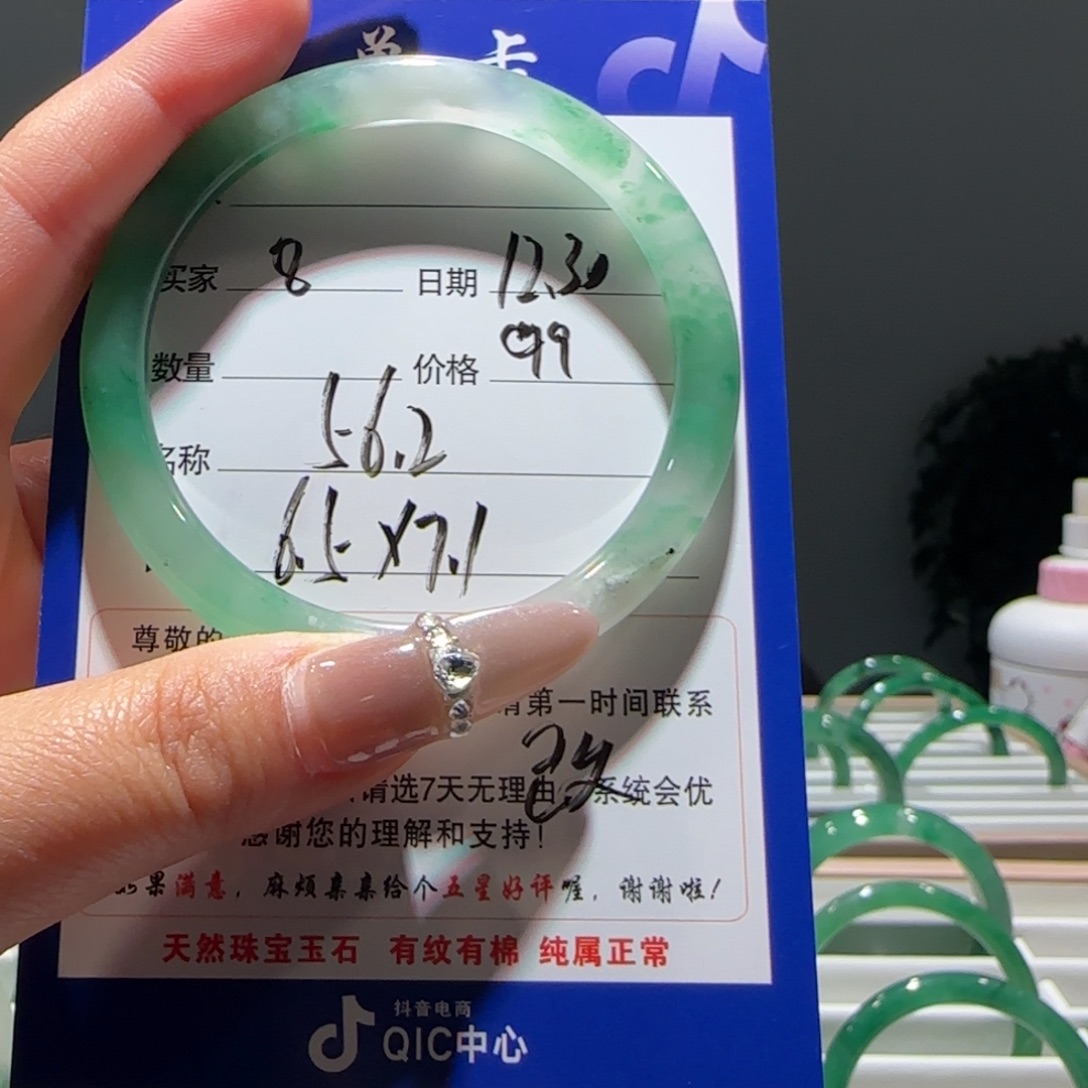 单 卡
买家 8 日期 12.30
数量 价格 99
名称 56.2
6.5×7.1
尊敬的
请第一时间联系
请选7天无理由 系统会优
感谢您的理解和支持!
如果满意，麻烦亲亲给个五星好评喔，谢谢啦!
天然珠宝玉石 有纹有棉 纯属正常
抖音电商
QIC中心